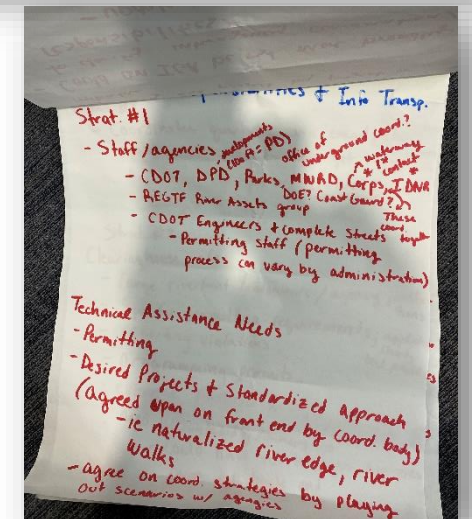 & Info Transp.
Strat. #1
- Staff/agencies
office of underground coord.?
- CDOT, DPD, Parks, MWRD, Corps, IDNR
* waterway contact *
DOE? Coast Guard?
- REGTF River Assets group
These coord. together
- CDOT Engineers & Complete Streets
- Permitting staff (permitting
process can vary by administration)
Technical Assistance Needs
- Permitting
- Desired Projects & Standardized approach
(agreed upon on front end by coord. body)
- ie naturalized river edge, river
walks
- agree on coord. strategies by playing
out scenarios w/ agencies